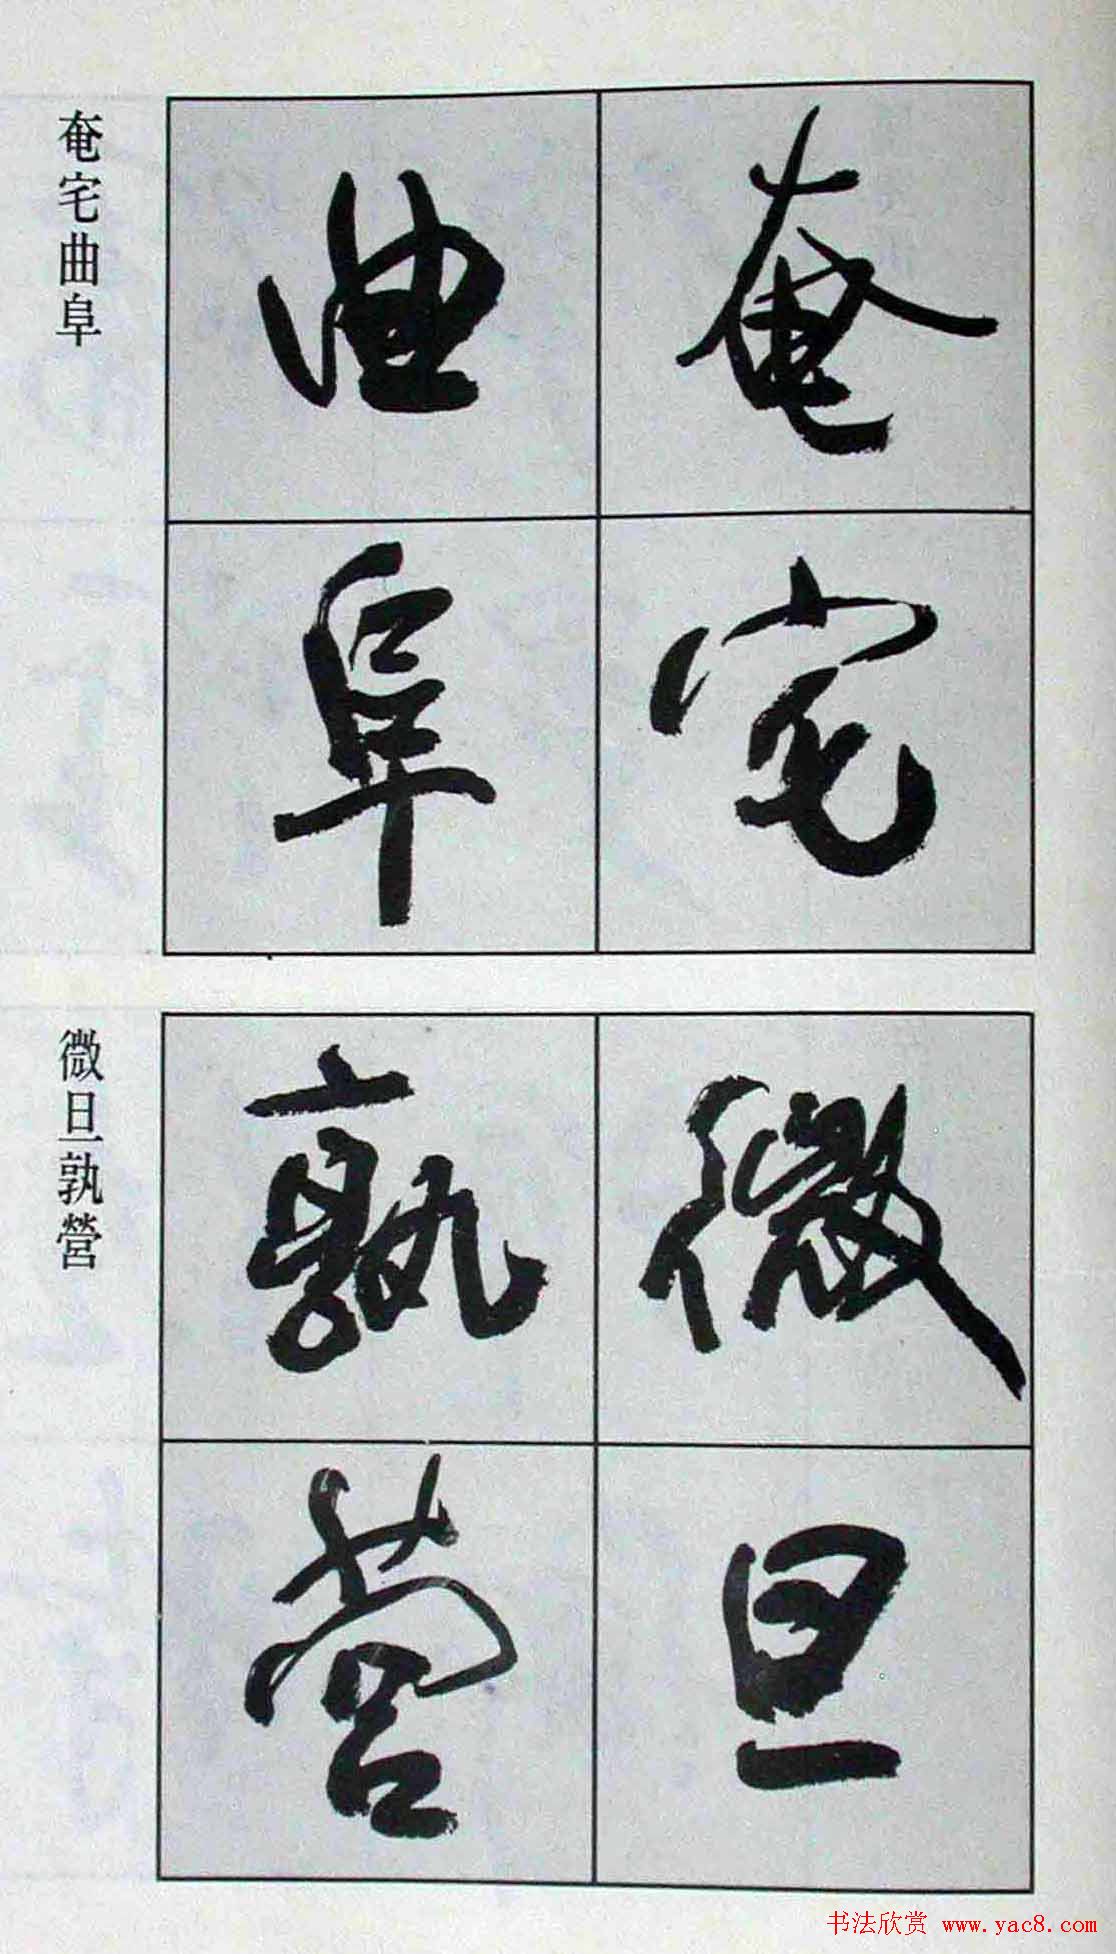 奄宅
曲阜
奄宅曲阜
微旦
孰營
微旦孰營
书法欣赏 www.yac8.com